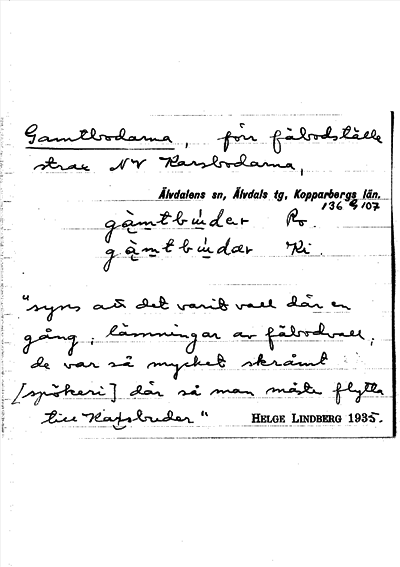 Gamtbodarna, förr fäbodställe
strax NV Karsbodarna,
Älvdalens sn, Älvdals tg, Kopparbergs län.
136 G 107
gàmtbúder Ro.
gàmtbúdær Ki.
"syns att det varit vall där en
gång; lämningar av fäbodvall;
de var så mycket skrämt
[spökeri] där så man måste flytta
till Karsbuder"
HELGE LINDBERG 1935.